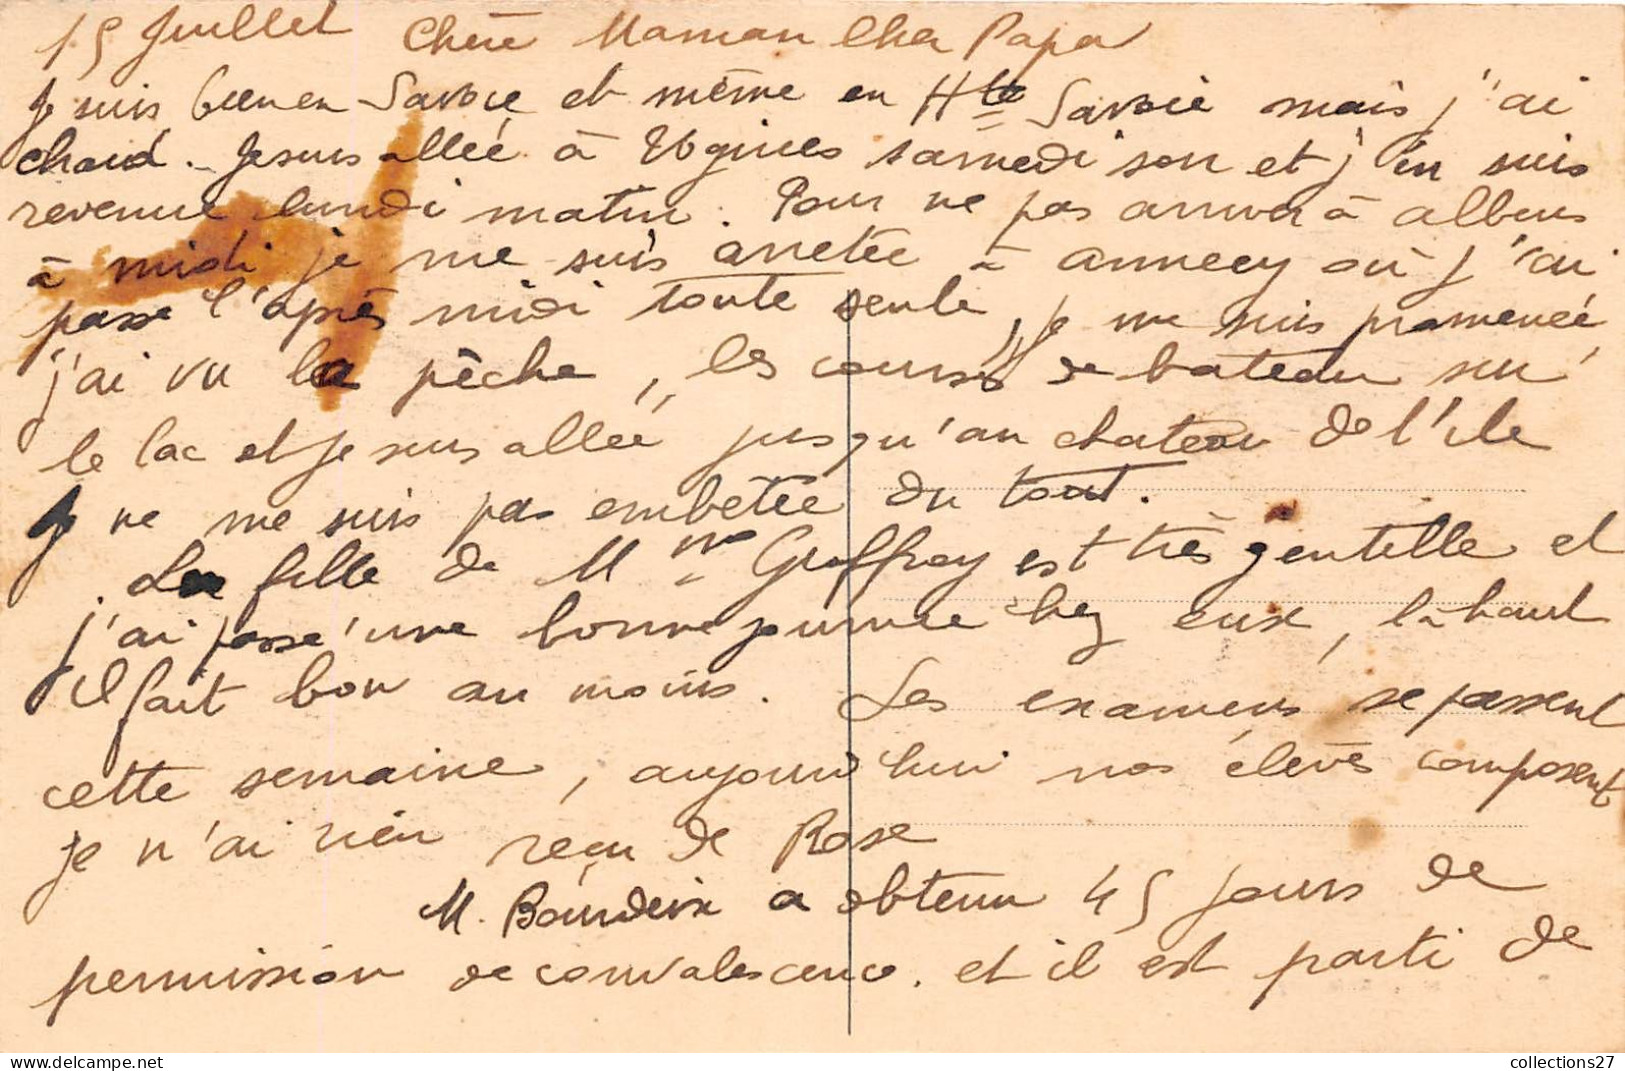 15 Juillet Chère Maman Cher Papa
Je suis bien en Savoie et même en Hte Savoie mais j'ai
chaud. Je suis allée à Ugines samedi soir et j'en suis
revenue lundi matin. Pour ne pas arriver à albens
à midi je me suis arretée à annecy où j'ai
passé l'après midi toute seule, je me suis promenée
j'ai vu la pêche, les courses de bateau sur
le lac et je suis allée jusqu'au chateau de l'ile
Je ne me suis pas embetée du tout.
La fille de Mme est très gentille et
j'ai passé une bonne journée chez eux, la haut
il fait bon au moins. Les examens se passent
cette semaine, aujourd'hui nos élèves composent
je n'ai rien reçu de Rose
M. a obtenu 45 jours de
permission de convalescence. et il est parti de
collections27